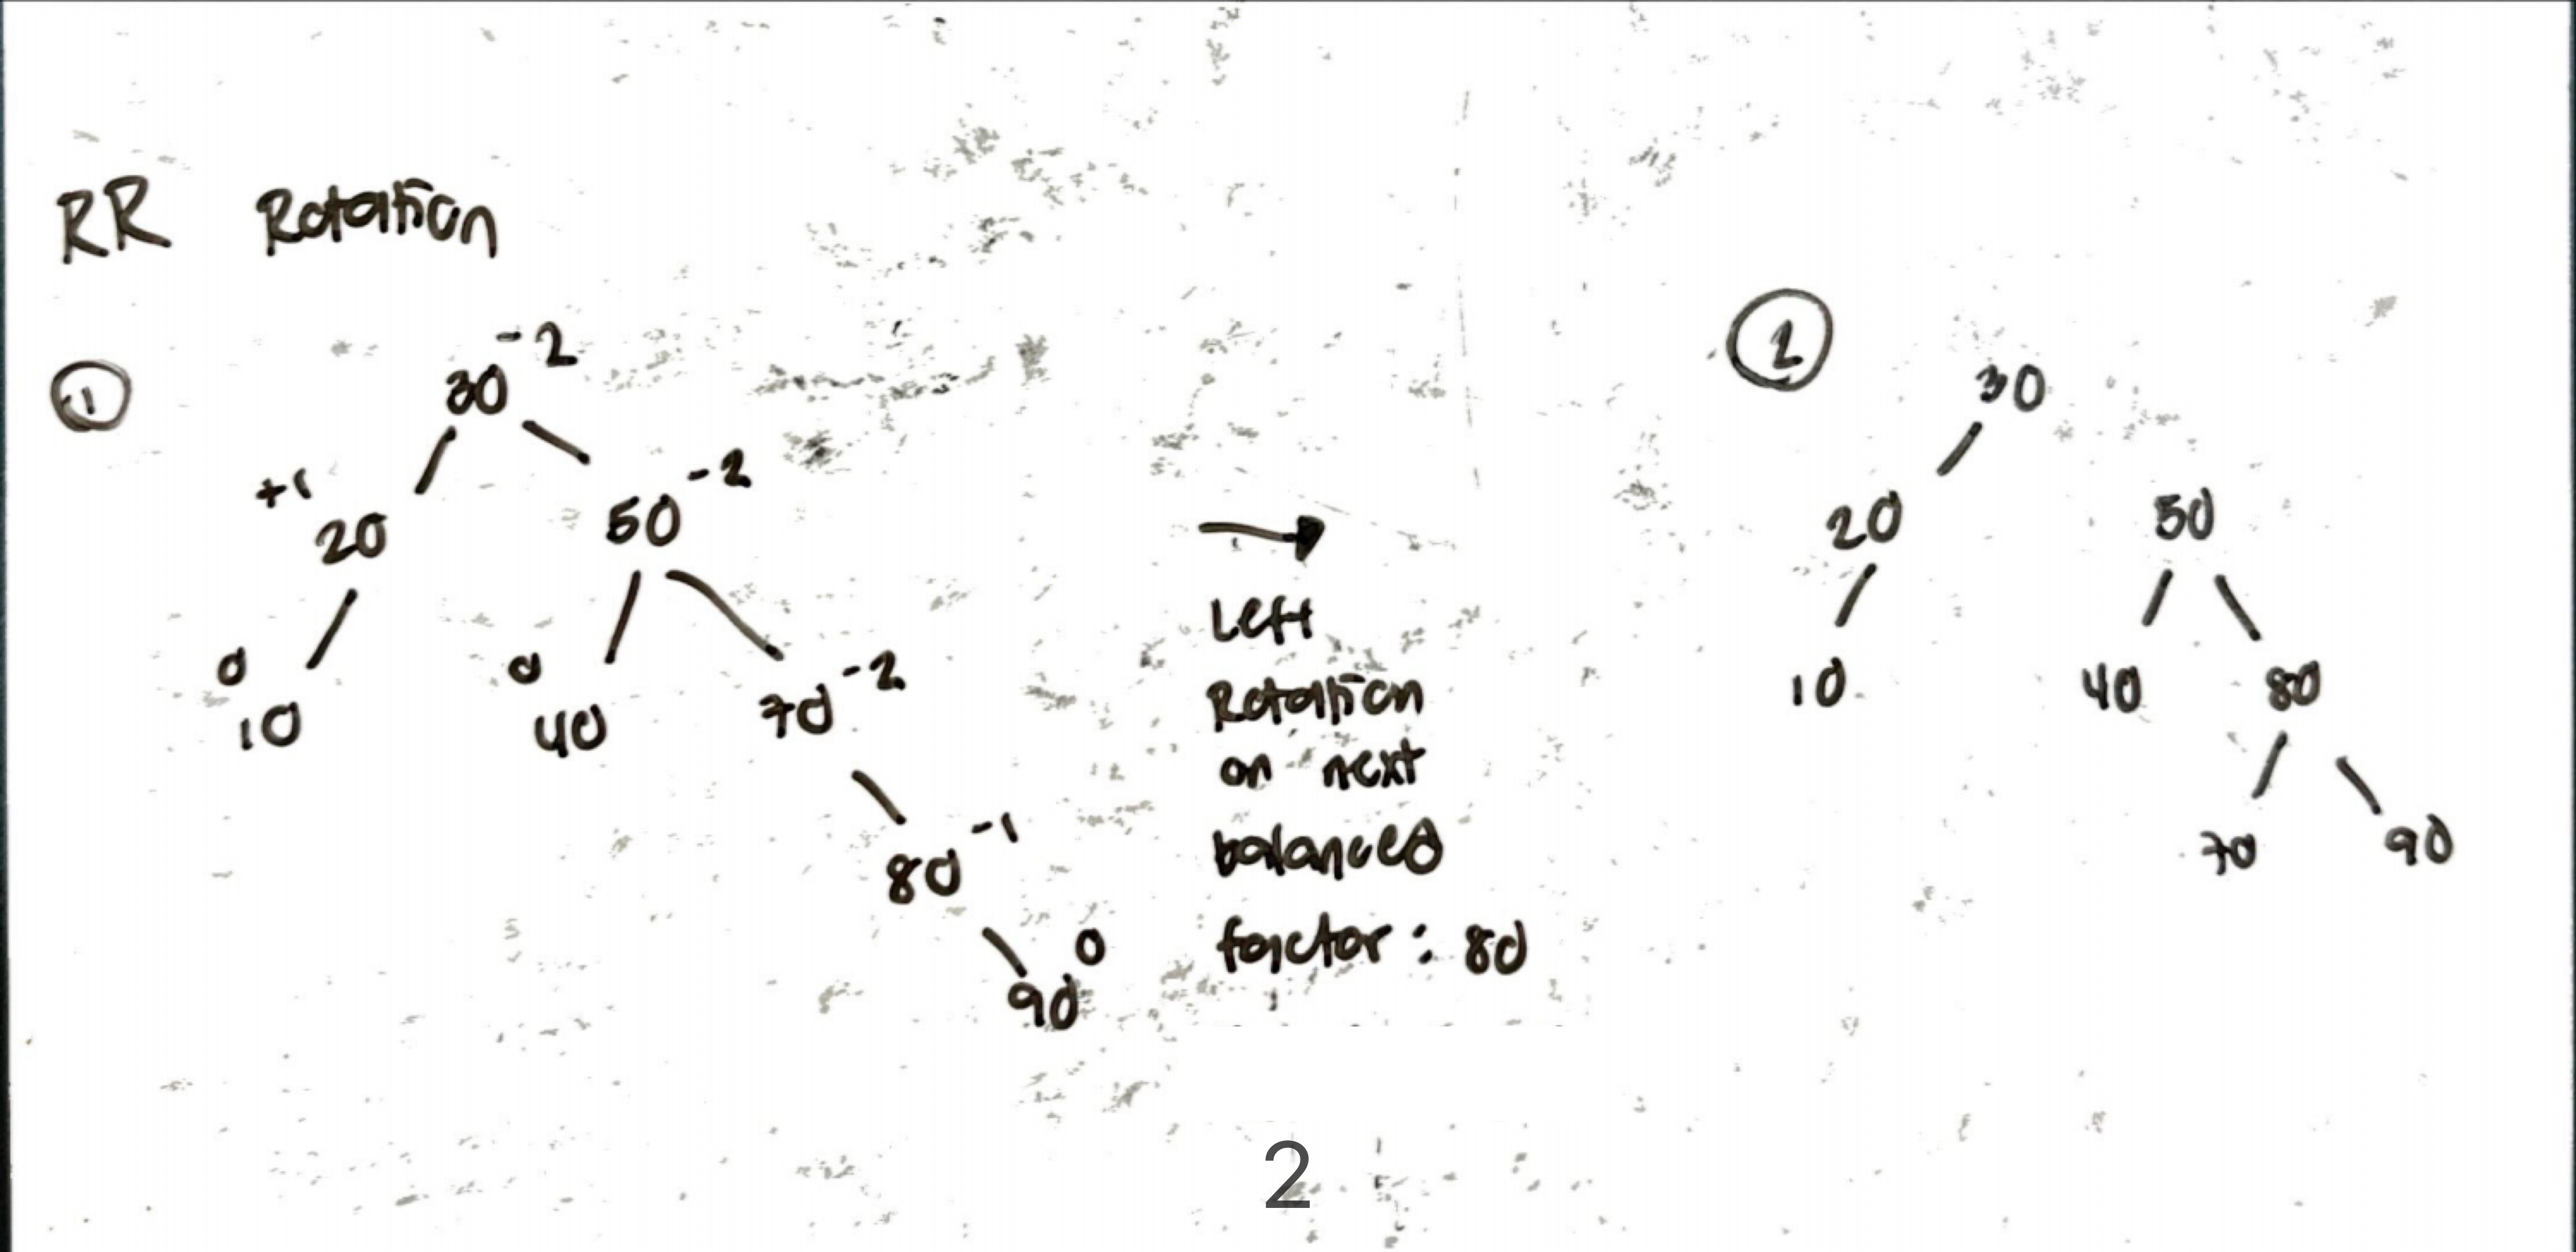 RR Rotation
1
30 -2
+1 20
50 -2
0 10
0 40
70 -2
80 -1
90 0
Left
Rotation
on next
balanced
factor: 80
2
30
20
50
10
40
80
70
90
2